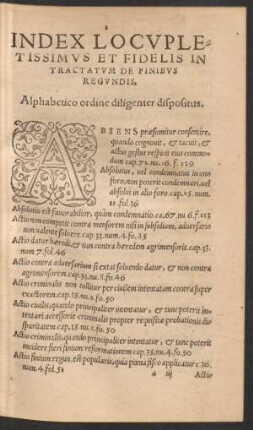 INDEX LOCVPLE-
TISSIMVS ET FIDELIS IN
TRACTATVM DE FINIBVS
REGVNDIS,
Alphabetico ordine diligenter dispositus.
ABSENS præsumitur consentire,
quando cognouit, & tacuit, &
actus gestus respicit eius commo-
dum cap. 72. nu. 16. f. 129
Absolutus, vel condemnatus in uno
foro, non poterit condemnari, uel
absolui in alio foro. cap. 25. num.
11. fol. 36
Absolutio est fauorabilior, quàm condemnatio. ca. 67. nu. 6. f. 113
Actio non competit contra mensorem nisi in subsidium, aduersario
non ualente soluere. cap. 33. num. 4. fo. 45
Actio datur hæredi, & non contra hæredem agrimensoris. cap. 33.
num. 7. fol. 46
Actio contra aduersarium si extat soluendo datur, & non contra
agrimensorem cap. 33. nu. 8. fo. 46
Actio criminalis non tollitur per ciuilem intentatam contra super
exactorem. cap. 35. nu. 1. fo. 50
Actio ciuilis, quando principaliter intentatur, & tunc poterit in-
tentari accessorie criminalis propter requisitæ probationis dis-
paritatem cap. 35. nu. 1. fo. 50
Actio criminalis, quando principaliter intentatur, & tunc poterit
incidere fieri finium reformationem cap. 35. nu. 4. fo. 50
Actio finium regun. est popularis, quia
num. 4. fol. 51
a iij Actio